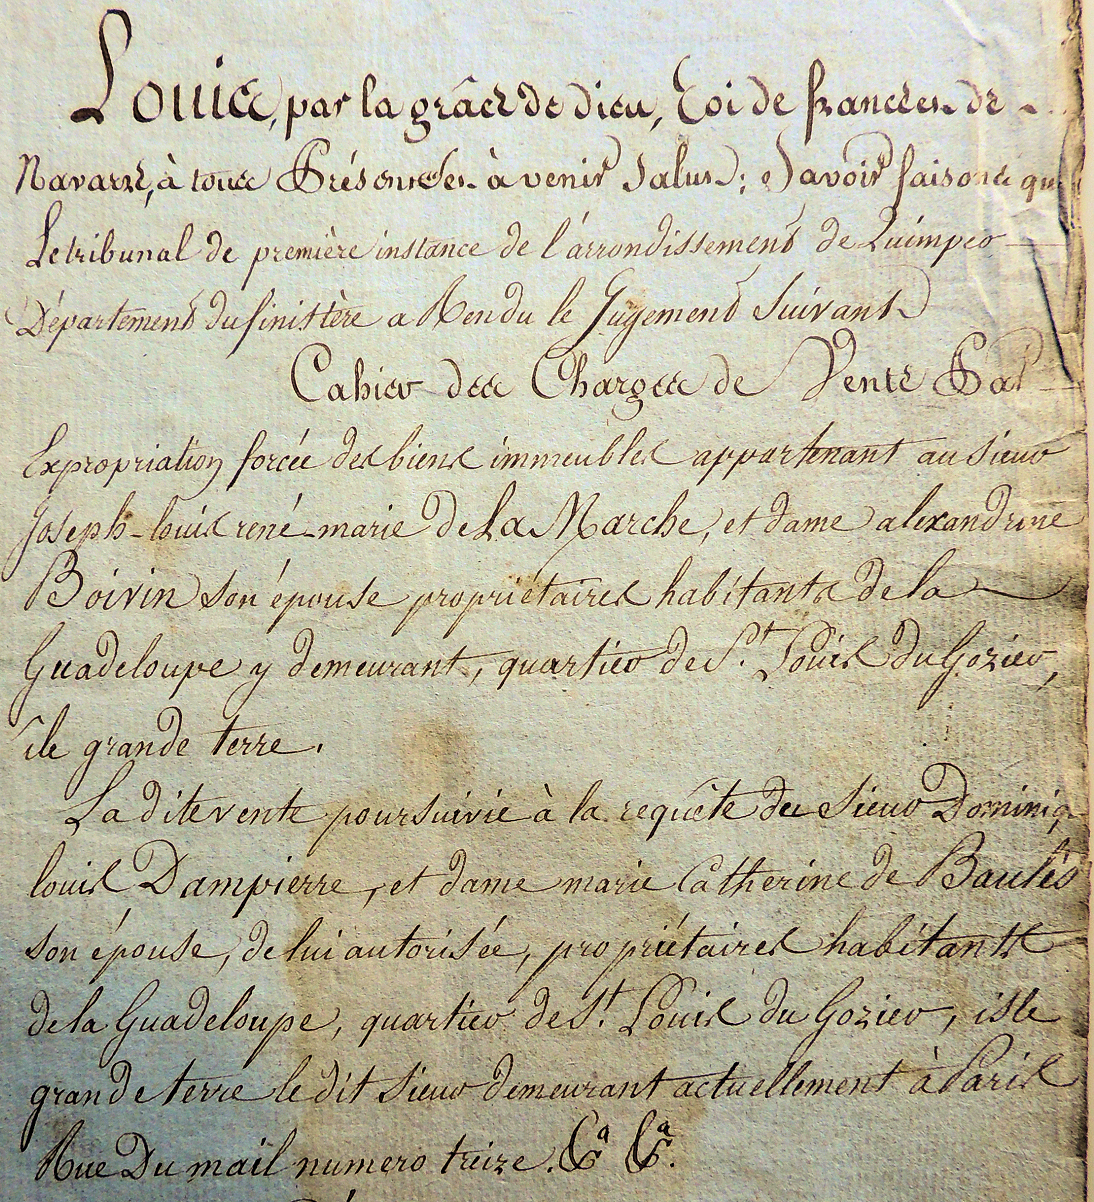 Louis, par la grâce de dieu, Roi de france et de
Navarre, à tous Présents et à venir Salut; Savoir faisons que
Le tribunal de première instance de l'arrondissement de Quimper
Département du finistère a Rendu le Jugement Suivant
Cahier des Charges de Vente Par
Expropriation forcée des biens immeubles appartenant au Sieur
Joseph-louis rené marie De La Marche, et dame alexandrine
Boivin son épouse propriétaires habitants de la
Guadeloupe y demeurant, quartier de St. Louis du Gozier,
île grande terre.
La dite vente poursuivie à la requête du Sieur Dominiq
louis Dampierre, et dame marie Catherine de Baulès
son épouse, de lui autorisée, propriétaires habitants
de la Guadeloupe, quartier de St. Louis du Gozier, isle
grande terre le dit Sieur demeurant actuellement à Paris
Rue Du mail numero treize.